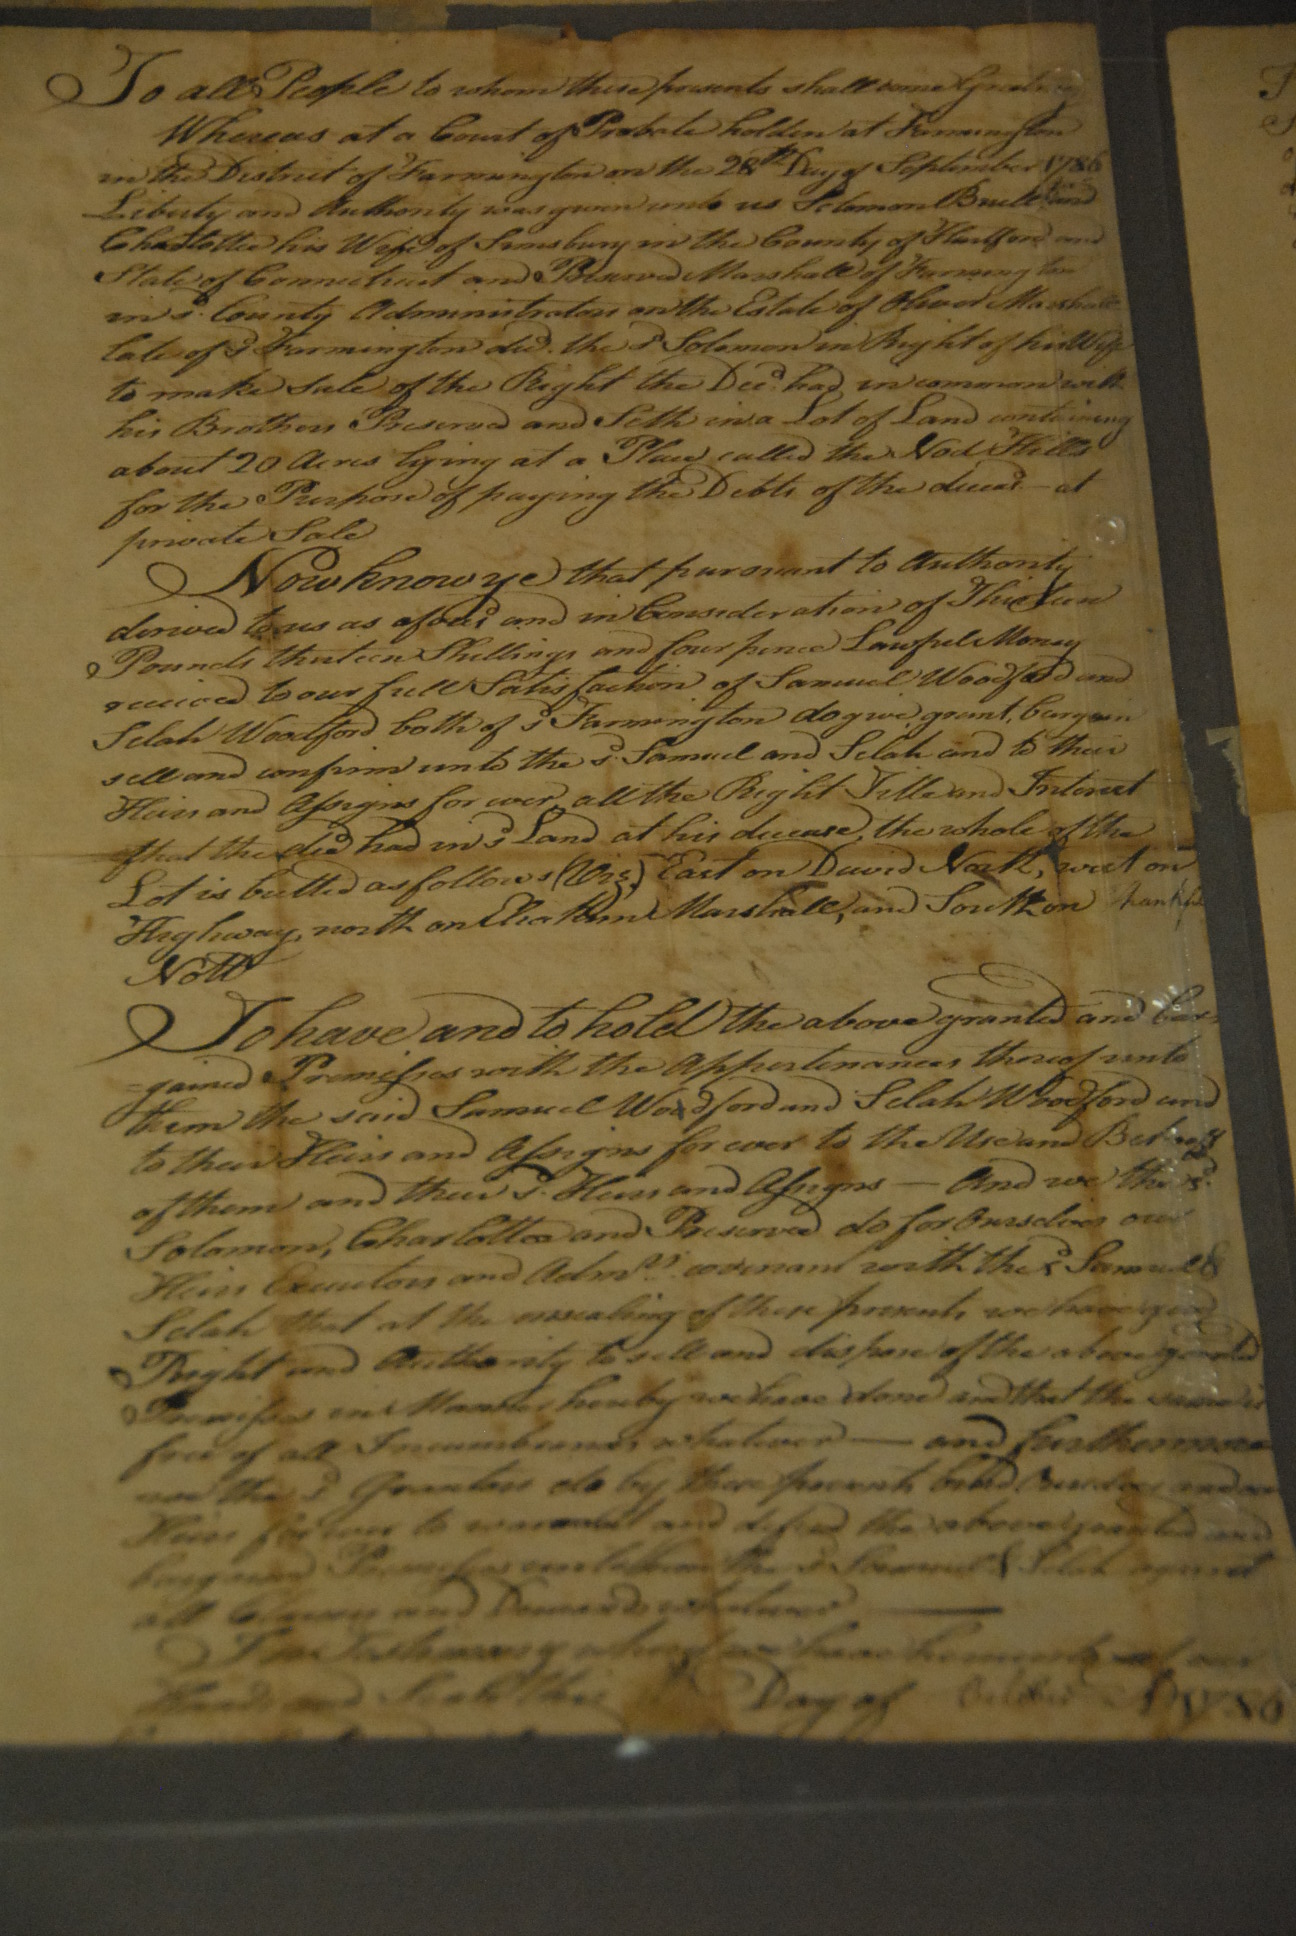 To all People to whom these presents shall come Greeting
Whereas at a Court of Probate holden at Farmington
in the District of Farmington on the 28th Day of September 1786
Liberty and Authority was given unto us Solomon Buell and
Charlotte his Wife of Simsbury in the County of Hartford and
State of Connecticut and Preserved Marshall of Farmington
in sd. County Administrators on the Estate of Oliver Marshall
late of sd Farmington decd. the sd Solomon in Right of his Wife
to make Sale of the Right the Decd. had in common with
his Brothers Preserved and Seth in a Lot of Land containing
about 20 Acres lying at a Place called the Nod Hills
for the Purpose of paying the Debts of the decead. — at
private Sale
Now know ye that pursuant to Authority
derived to us as aforesd. and in Consideration of Thirteen
Pounds thirteen Shillings and four pence Lawful Money
received to our full Satisfaction of Samuel Woodford and
Selah Woodford both of sd Farmington do give, grant, bargain
sell and confirm unto the sd. Samuel and Selah and to their
Heirs and Assigns for ever, all the Right Title and Interest
that the decd had in sd Land at his decease, the whole of the
Lot is butted as follows (Viz.) East on David North, west on
Highway, north on Eliakim Marshall, and South on
Nott
To have and to hold the above granted and bar-
-gained Premisses with the Appertenances thereof unto
them the said Samuel Woodford and Selah Woodford and
to their Heirs and Assigns for ever to the Use and Behoof
of them and their sd. Heirs and Assigns — And we the sd.
Solomon, Charlotte and Preserved do for Ourselves our
Heirs Executors and Admrs. covenant with the sd Samuel &
Selah that at the ensealing of these presents we have good
Right and Authority to sell and dispose of the above granted
Premisses in Manner hereby we have done and that the same is
free of all Incumbrances whatever — and furthermore
we the sd Grantors do by these presents bind Ourselves and our
Heirs for ever to warrant and defend the above granted and
bargained Premisses unto them the sd Samuel & Selah against
all Claims and Demands whatever
In Testimony whereof we have hereunto set our
Hands and Seals this Day of October AD 1786